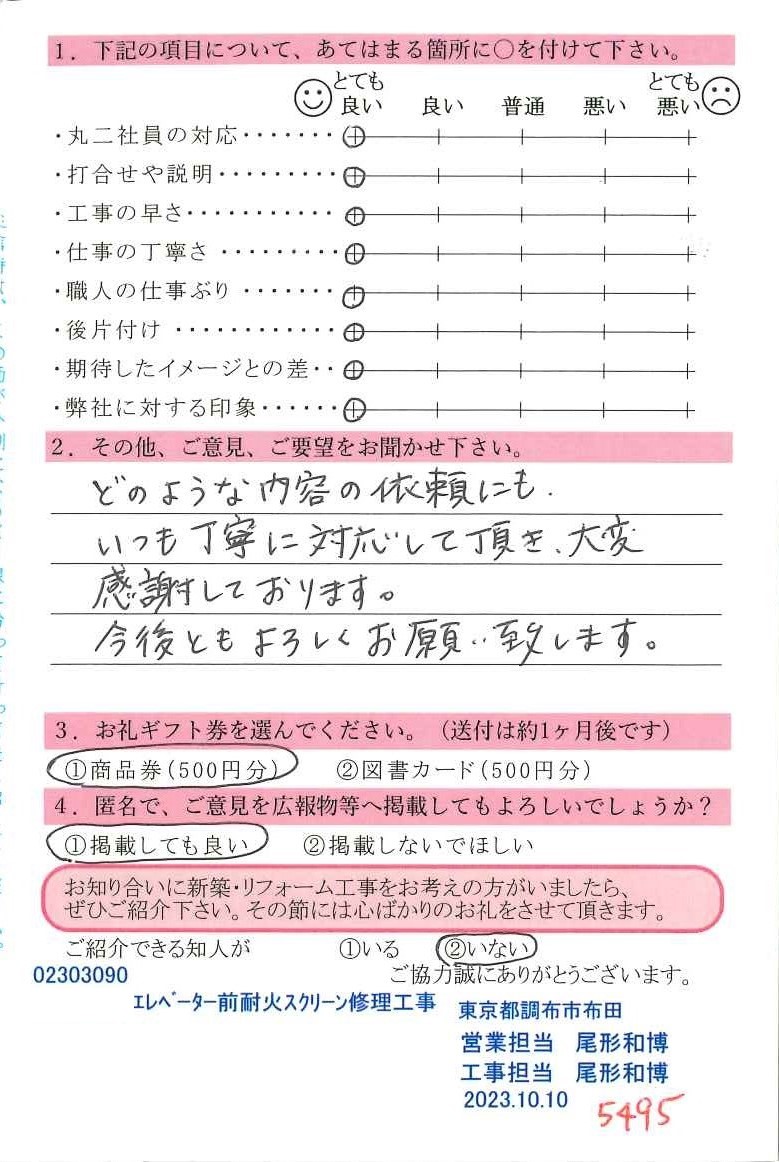 1．下記の項目について、あてはまる箇所に○を付けて下さい。
とても良い 良い 普通 悪い とても悪い
・丸二社員の対応・・・・・・・
・打合せや説明・・・・・・・・・
・工事の早さ・・・・・・・・・・・
・仕事の丁寧さ ・・・・・・・・・
・職人の仕事ぶり ・・・・・・・
・後片付け ・・・・・・・・・・・・
・期待したイメージとの差・・
・弊社に対する印象・・・・・・
2．その他、ご意見、ご要望をお聞かせ下さい。
どのような内容の依頼にも、
いつも丁寧に対応して頂き、大変
感謝しております。
今後ともよろしくお願い致します。
3．お礼ギフト券を選んでください。（送付は約1ヶ月後です）
①商品券(500円分) ②図書カード(500円分)
4．匿名で、ご意見を広報物等へ掲載してもよろしいでしょうか？
①掲載しても良い ②掲載しないでほしい
お知り合いに新築・リフォーム工事をお考えの方がいましたら、
ぜひご紹介下さい。その節には心ばかりのお礼をさせて頂きます。
ご紹介できる知人が ①いる ②いない
02303090 ご協力誠にありがとうございます。
ｴﾚﾍﾞｰﾀｰ前耐火ｽｸﾘｰﾝ修理工事 東京都調布市布田
営業担当 尾形和博
工事担当 尾形和博
2023.10.10
5495